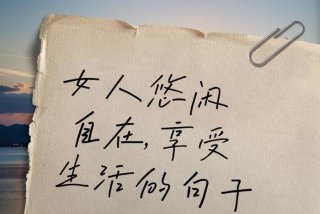 女人悠闲
自在,享受
生活的句子